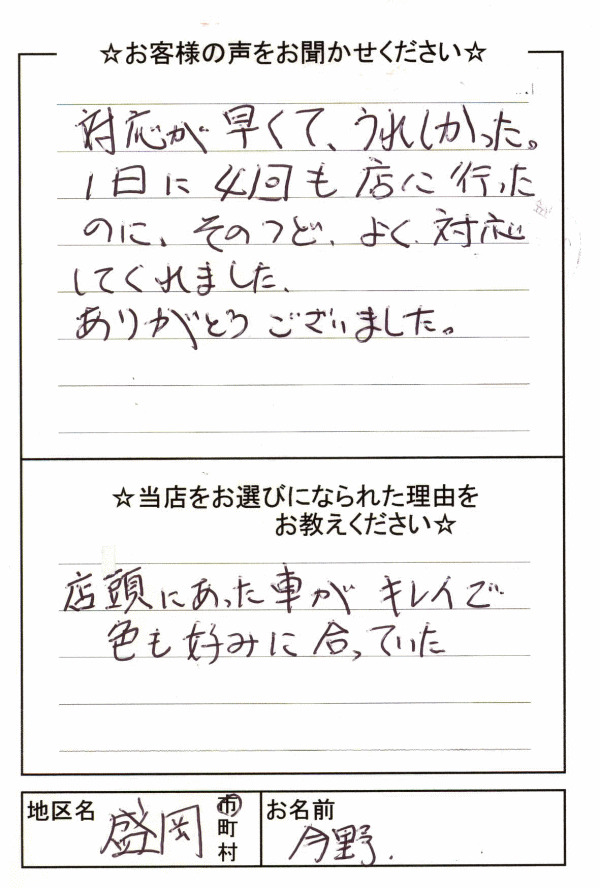 ☆お客様の声をお聞かせください☆
対応が早くて、うれしかった。
1日に4回も店に行った
のに、そのつど、よく対応
してくれました、
ありがとうございました。
☆当店をお選びになられた理由を
お教えください☆
店頭にあった車がキレイで
色も好みに合っていた
地区名 盛岡 市町村
お名前 今野.